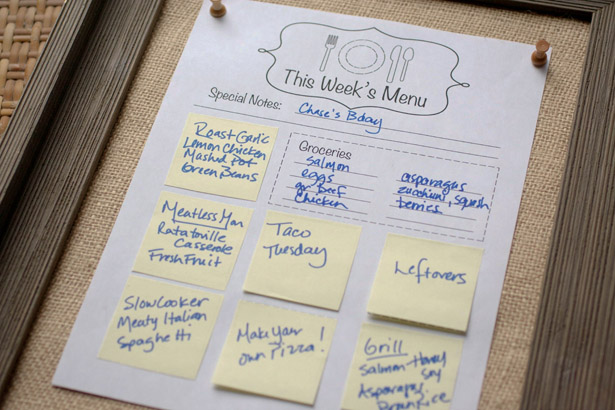 This Week's Menu
Special Notes: Chase's Bday
Roast Garlic
Lemon Chicken
Mashd Pot
Green Beans
Groceries
salmon
eggs
gr. Beef
Chicken
asparagus
zucchini, squash
berries
Meatless Mon
Ratatouille
Casserole
Fresh Fruit
Taco
Tuesday
Leftovers
Slow Cooker
Meaty Italian
Spaghetti
Make Your
own Pizza!
Grill
Salmon-Honey
Soy
Asparagus
Brown Rice